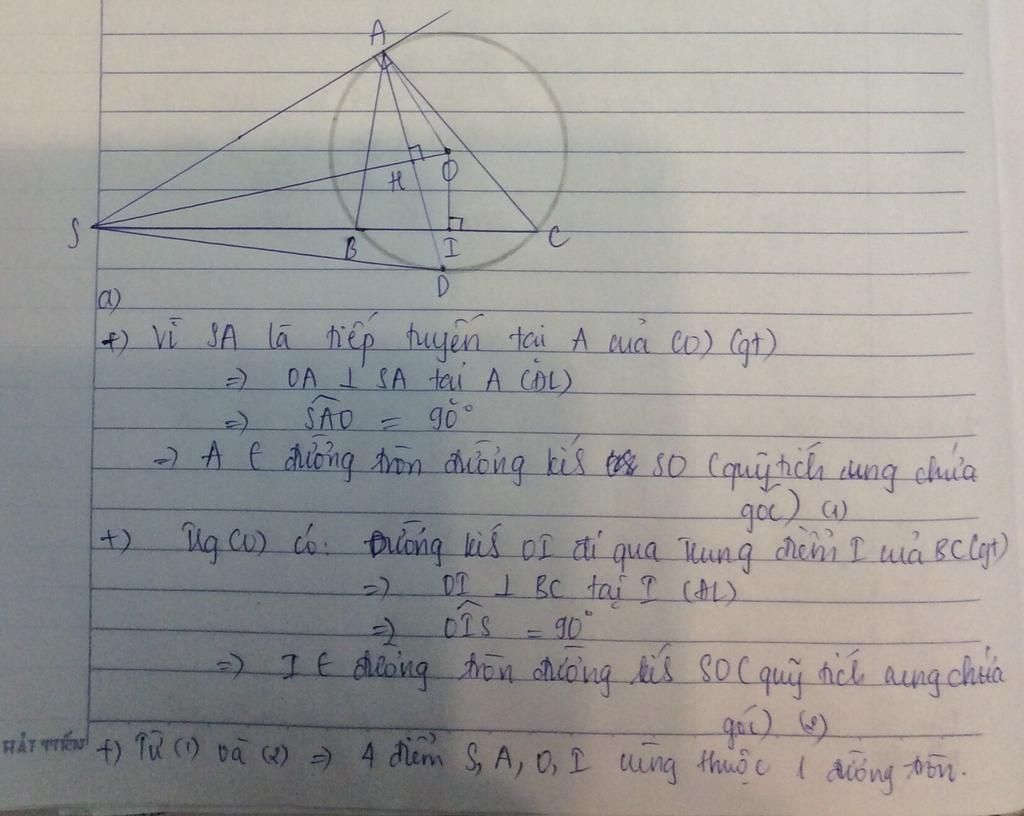 A
H
O
S
B
I
C
D
a)
+) Vì SA là tiếp tuyến tại A của (O) (gt)
=> OA ⊥ SA tại A (ĐL)
=> SAO = 90°
=> A ∈ đường tròn đường kính SO (quỹ tích cung chứa
góc) (1)
+) Trg (O) có: Đường kính OI đi qua trung điểm I của BC (gt)
=> OI ⊥ BC tại I (ĐL)
=> OIS = 90°
=> I ∈ đường tròn đường kính SO (quỹ tích cung chứa
góc) (2)
HẢI TIẾN
+) Từ (1) và (2) => 4 điểm S, A, O, I cùng thuộc 1 đường tròn.